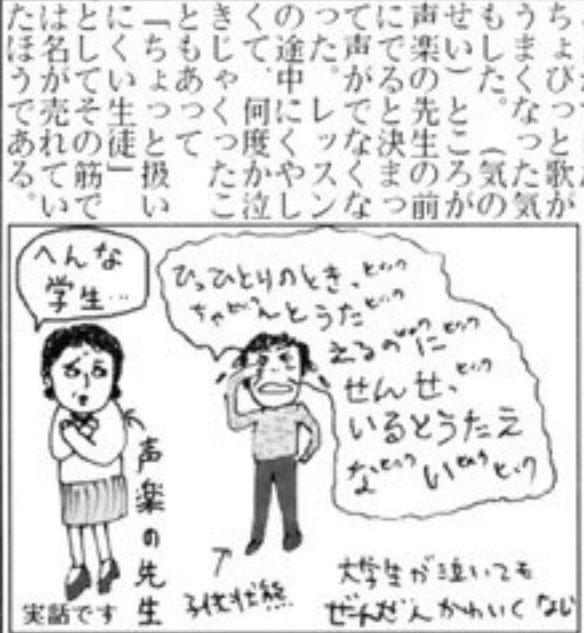 ちょびっと歌が
うまくなった気
もした。（気の
せい）ところが
声楽の先生の前
にでると決まっ
て声がでなくな
った。レッスン
の途中にくやし
くて、何度か泣
きじゃくったこ
ともあって
「ちょっと扱い
にくい生徒」
としてその筋で
は名が売れてい
たほうである。
ひっひとりのとき、ヒック
ちゃヒックんとうたヒック
えるのヒックにヒック
せんせっヒック
いるとうたえ
なヒックいヒックヒック
へんな
学生…
声楽の先生
子供状態
大学生が泣いても
ぜんぜんかわいくない
実話です